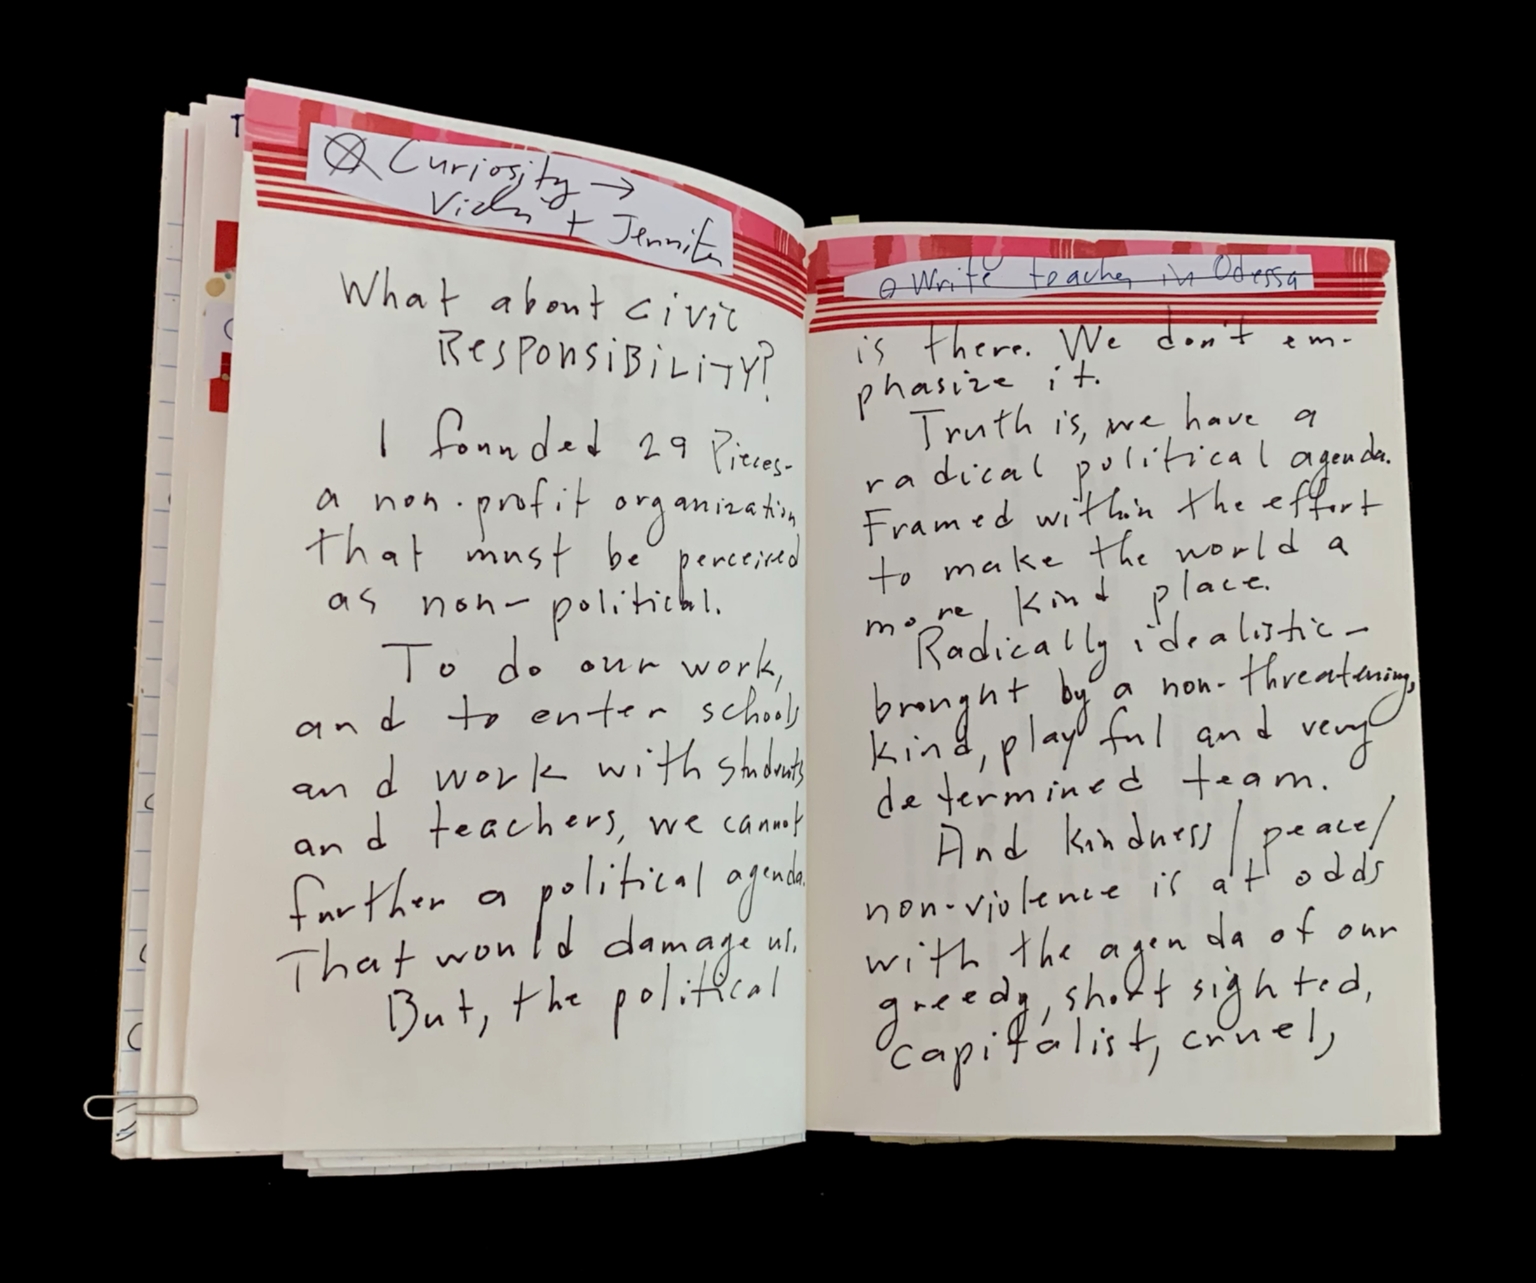 Curiosity →
+ Jennifer
What about civic
RESPONSIBILITY?
I founded 29 Pieces-
a non-profit organization
that must be perceived
as non-political.
To do our work,
and to enter schools
and work with students
and teachers, we cannot
further a political agenda.
That would damage us.
But, the political
Write teacher in Odessa
is there. We don't em-
phasize it.
Truth is, we have a
radical political agenda.
Framed within the effort
to make the world a
more kind place.
Radically idealistic-
brought by a non-threatening,
kind, playful and very
determined team.
And kindness/peace/
non-violence is at odds
with the agenda of our
greedy, short sighted,
capitalist, cruel,